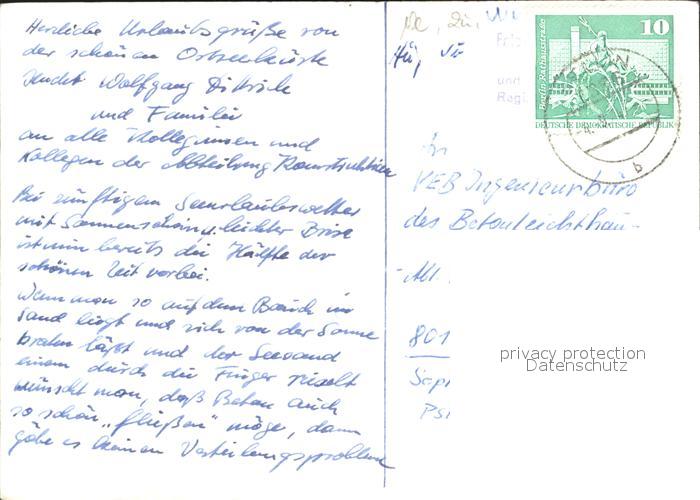 Herzliche Urlaubsgrüße von
der schönen Ostseeküste
Wolfgang
und Familie
an alle Kolleginnen und
Kollegen der Abteilung Konstruktion
Bei zünftigem Seeurlaubswetter
mit Sonnenschein u. leichter Brise
ist nun bereits die Hälfte der
schönen Zeit vorbei.
Wenn man so auf dem Bauch im
Sand liegt und sich von der Sonne
braten läßt und der Seesand
einem durch die Finger rieselt
wünscht man, daß Beton auch
so schön „fließen" möge, dann
gäbe es keinen Verteilungsproblem
und
Regi
10
Berlin, Rathausstraße
DEUTSCHE DEMOKRATISCHE REPUBLIK
b
An
VEB Ingenieurbüro
des Betonleichtbau-
Abt.
801
privacy protection
Datenschutz